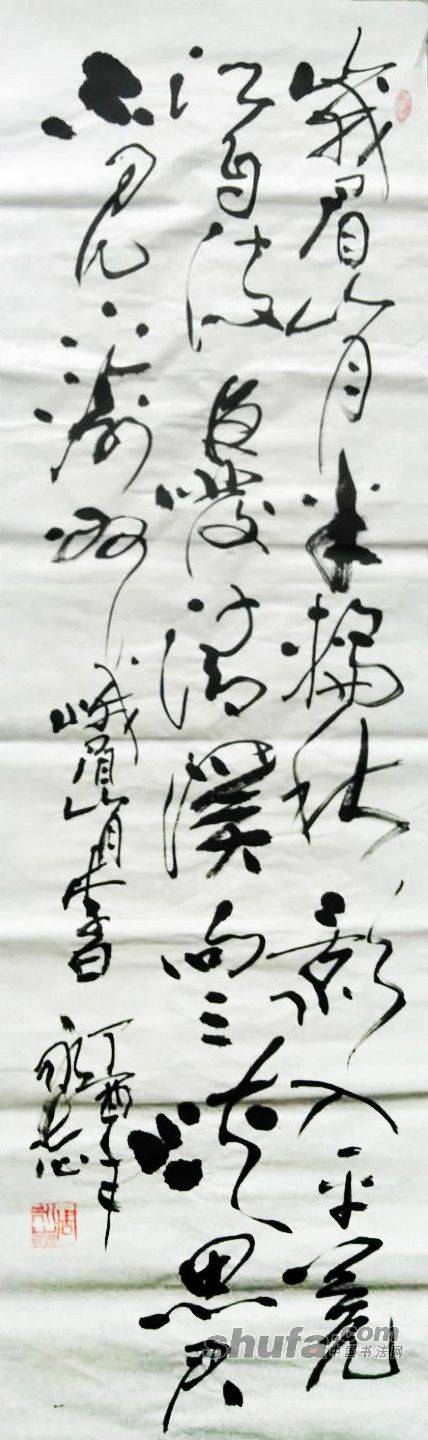 峨眉山月半輪秋影入平羌
江夜發清溪向三峡思君
不見下渝州
峨眉山月書
丁酉年
shufa.com
中国书法网